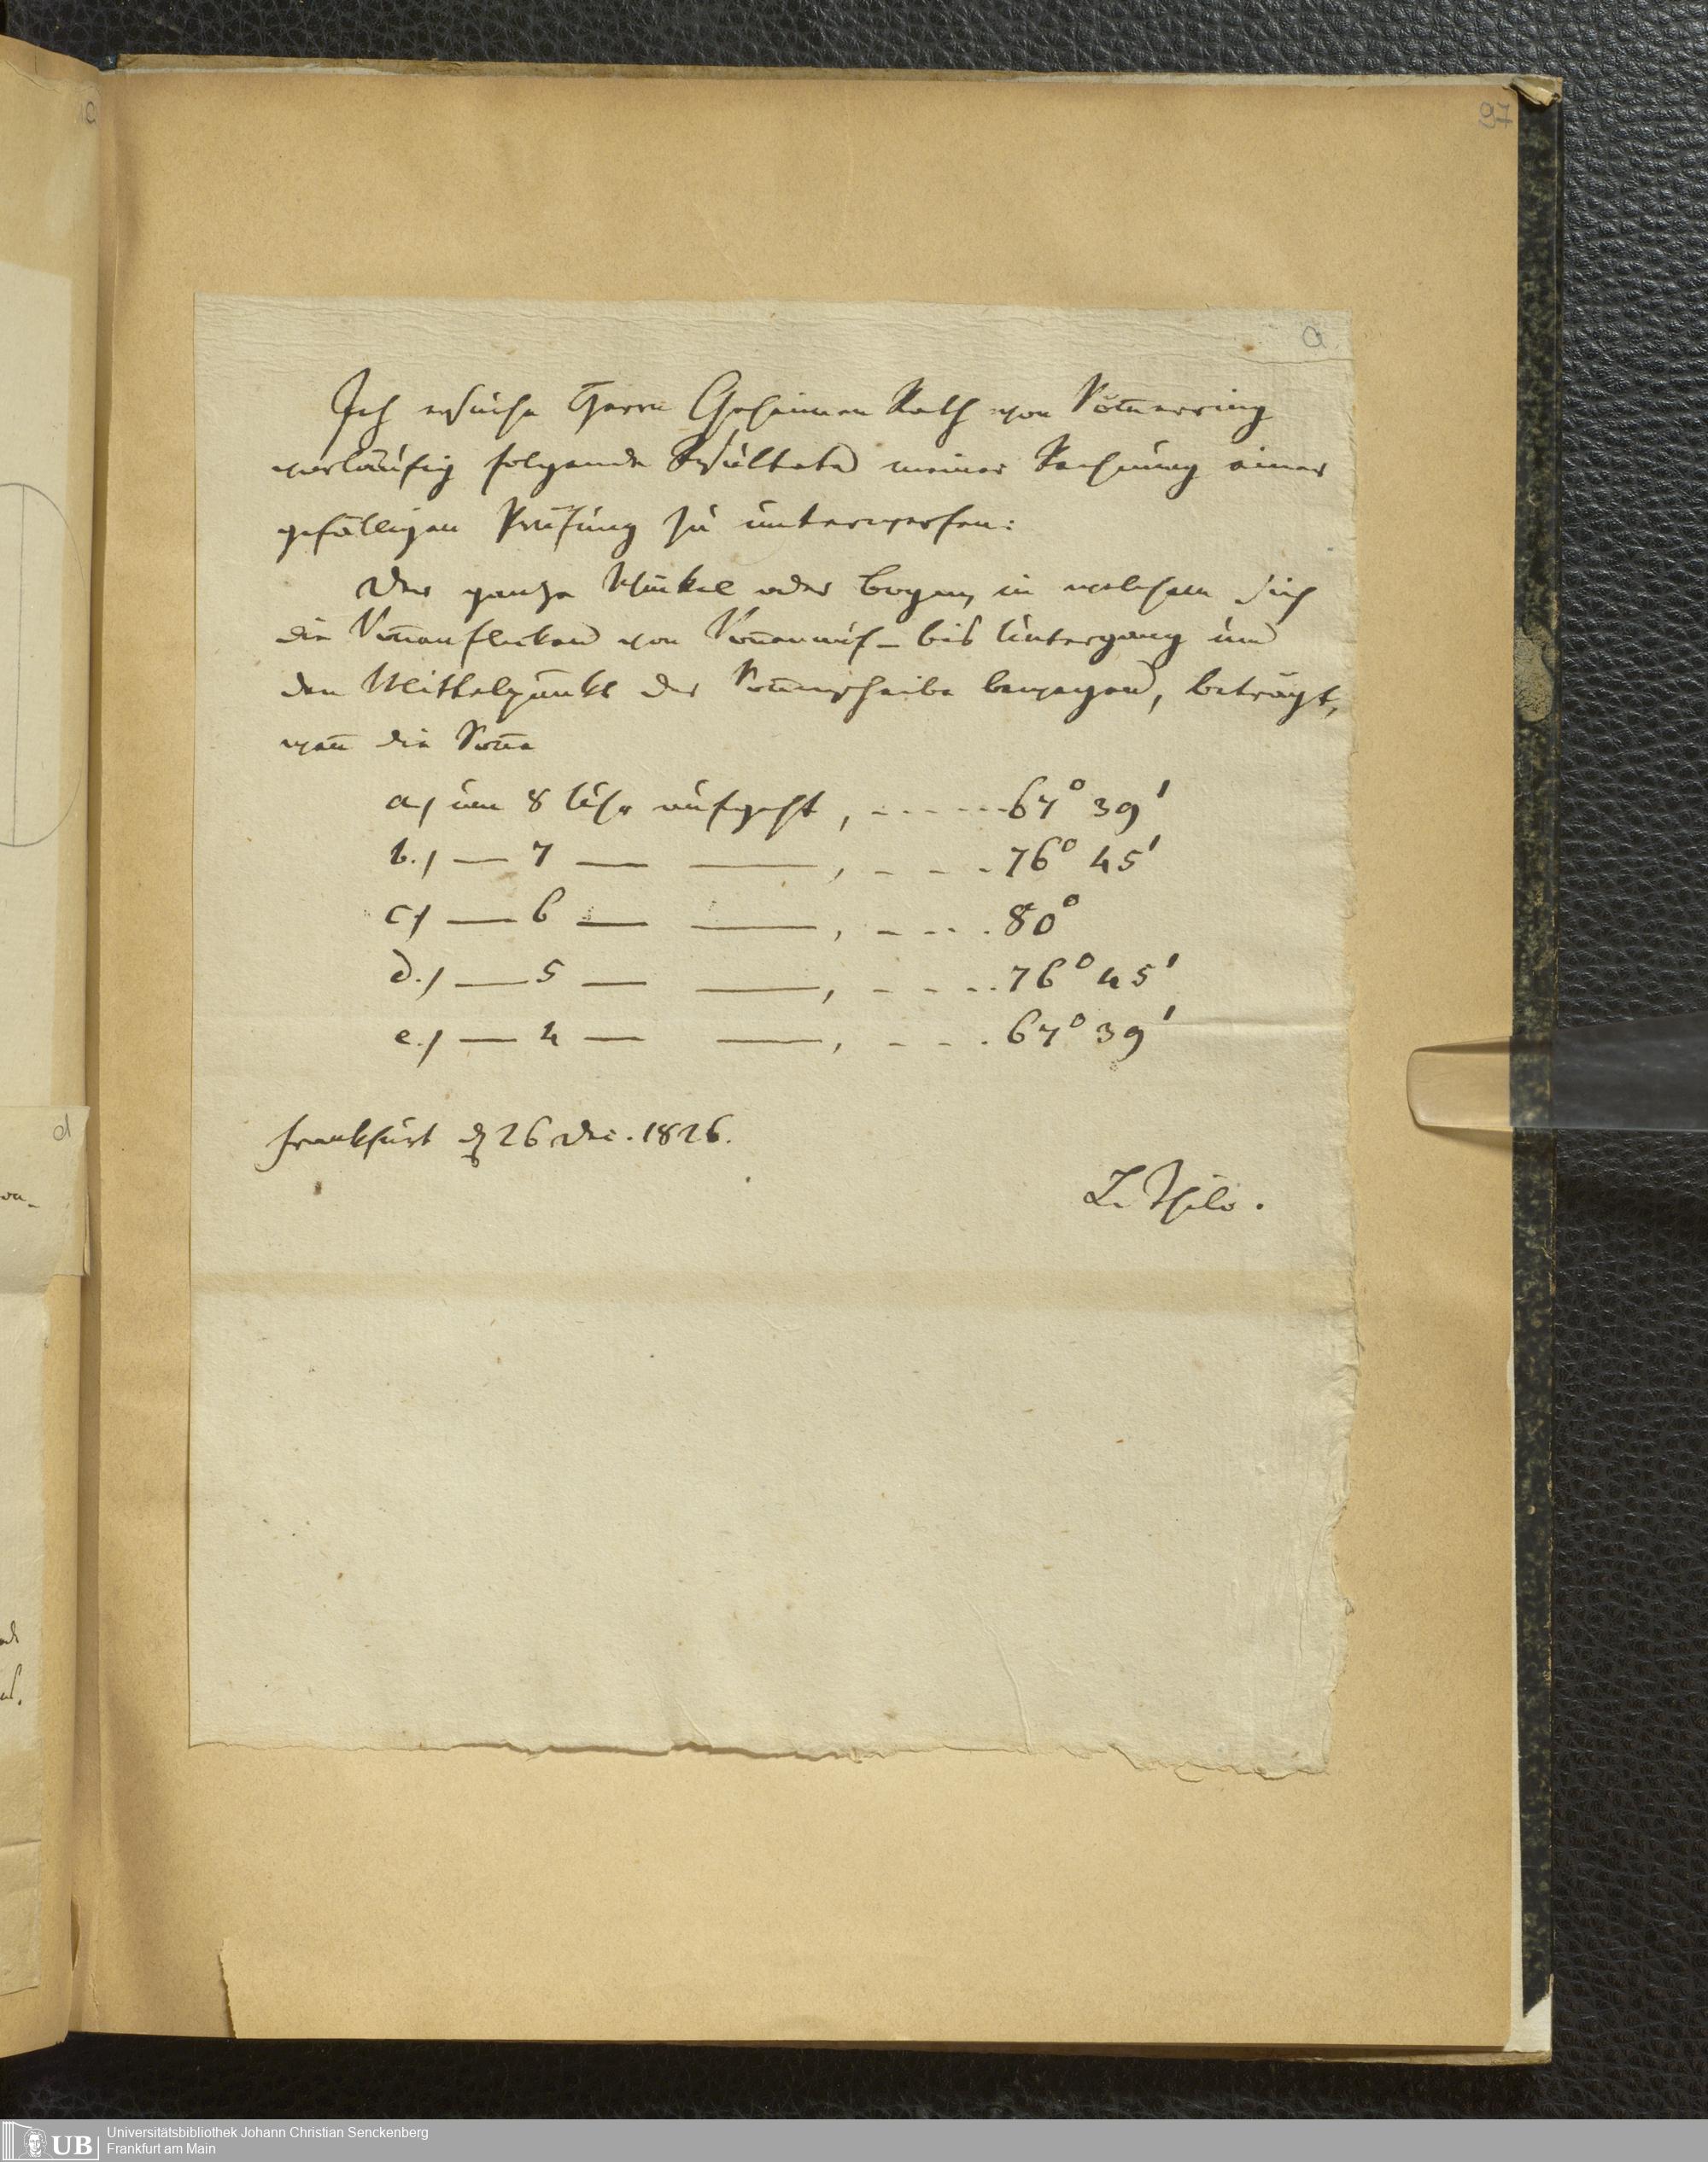 97
a
Ich ersuche Herrn Geheimen Rath von Söm̄erring
vorläufig folgende Resultate meiner Rechnung einer
gefälligen Prüfung zu unterwerfen:
Der ganze Winkel oder Bogen, in welchem sich
die Son̄enflecken von Son̄enauf- bis Untergang um
den Mittelpunkt der Son̄enscheibe bewegen, beträgt,
wen̄ die Son̄e
a.) um 8 Uhr aufgeht, - - - - - - 67° 39'
b.) — 7 — —, - - - - 76° 45'
c.) — 6 — —, - - - - 80°
d.) — 5 — —, - - - - 76° 45'
e.) — 4 — —, - - - 67° 39'
Frankfurt d 26 Dec. 1826.
L. Thilo.
d
Universitätsbibliothek Johann Christian Senckenberg
UB Frankfurt am Main